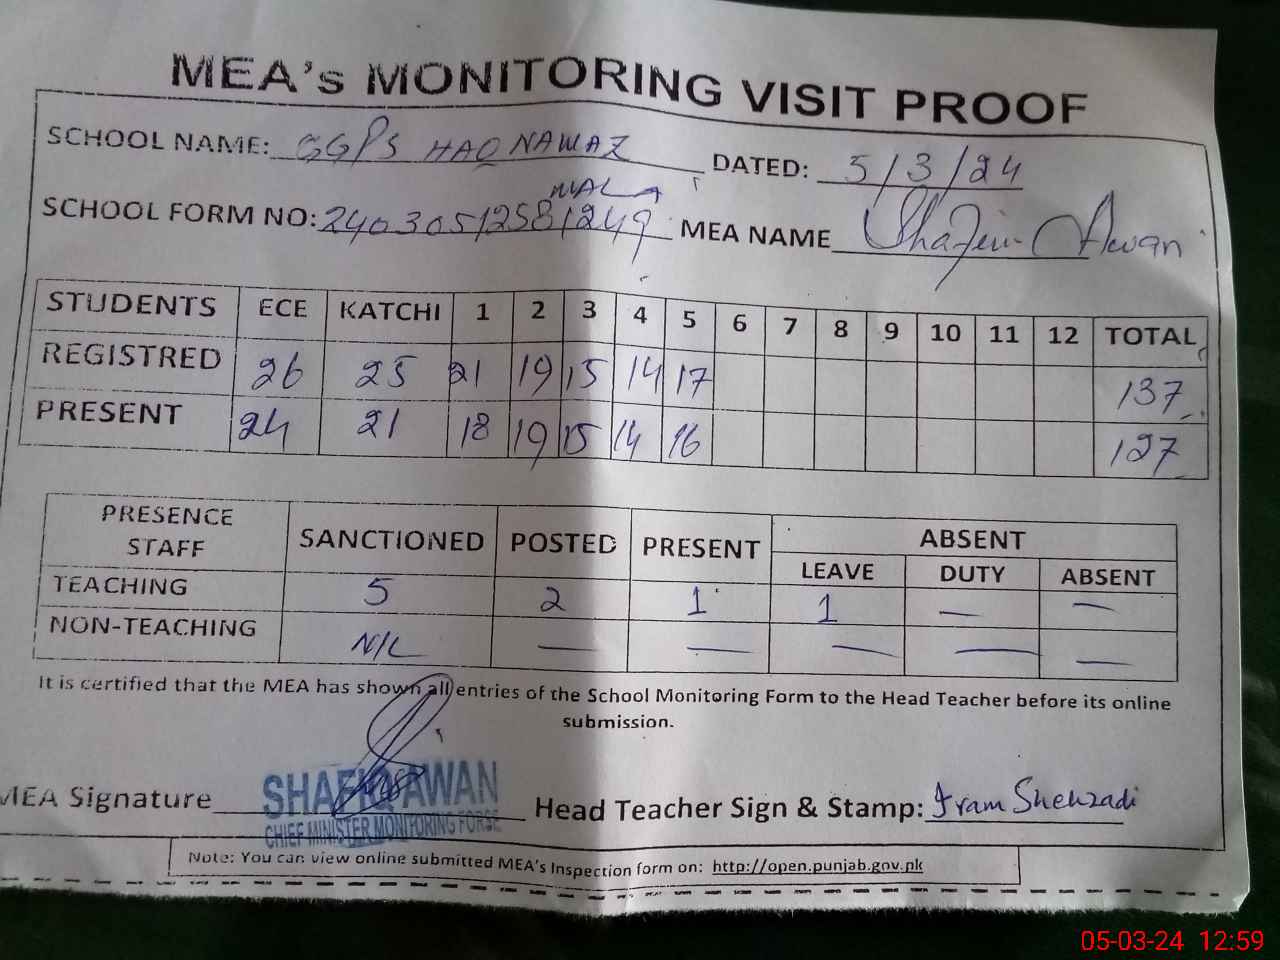 MEA's MONITORING VISIT PROOF
SCHOOL NAME: GGPS HAQ NAWAZ WALA DATED: 5/3/24
SCHOOL FORM NO: 24030512581249 MEA NAME Awan
STUDENTS ECE KATCHI 1 2 3 4 5 6 7 8 9 10 11 12 TOTAL
REGISTRED 26 25 21 19 15 14 17 137
PRESENT 24 21 18 19 15 14 16 127
PRESENCE STAFF SANCTIONED POSTED PRESENT ABSENT
LEAVE DUTY ABSENT
TEACHING 5 2 1 1 — —
NON-TEACHING N/L — — — — —
It is certified that the MEA has shown all entries of the School Monitoring Form to the Head Teacher before its online
submission.
MEA Signature SHAFIQ AWAN Head Teacher Sign & Stamp: Iram Shehzadi
CHIEF MINISTER MONITORING FORCE
Note: You can view online submitted MEA's Inspection form on: http://open.punjab.gov.pk
05-03-24 12:59